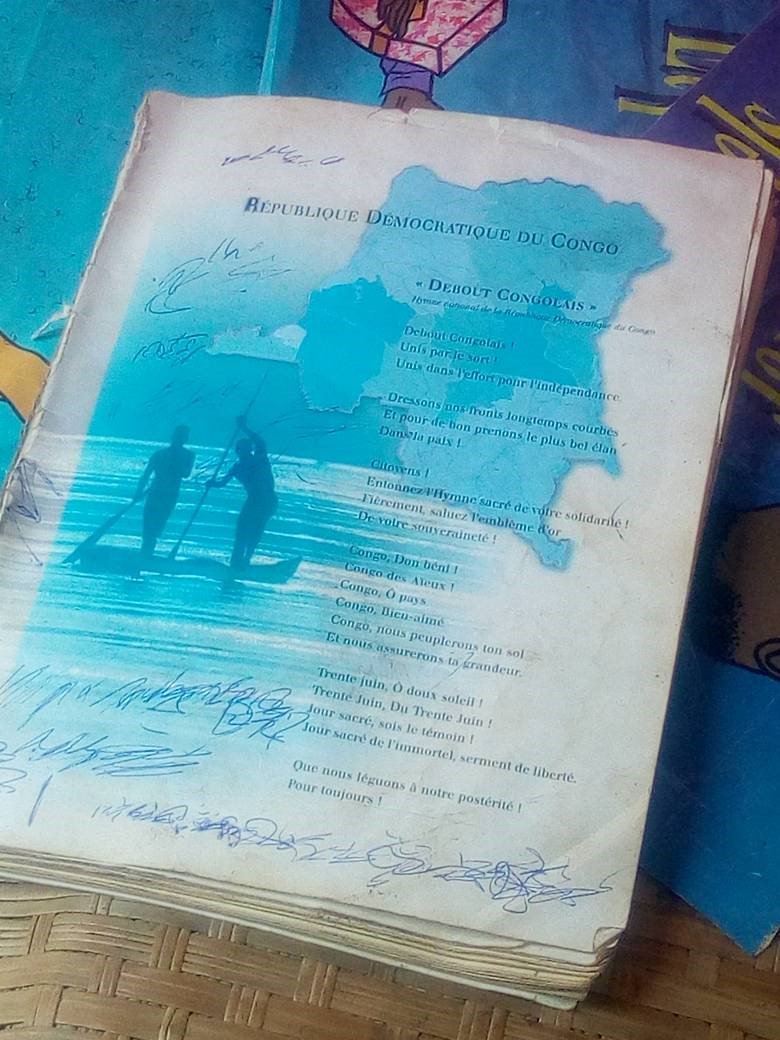 RÉPUBLIQUE DÉMOCRATIQUE DU CONGO
« DEBOUT CONGOLAIS »
Hymne national de la République Démocratique du Congo
Debout Congolais !
Unis par le sort !
Unis dans l'effort pour l'indépendance.
Dressons nos fronts longtemps courbés
Et pour de bon prenons le plus bel élan
Dans la paix !
Citoyens !
Entonnez l'Hymne sacré de votre solidarité !
Fièrement, saluez l'emblème d'or
De votre souveraineté !
Congo, Don béni !
Congo des Aïeux !
Congo, Ô pays
Congo, Bien-aimé
Congo, nous peuplerons ton sol
Et nous assurerons ta grandeur.
Trente juin, Ô doux soleil !
Trente Juin, Du Trente Juin !
Jour sacré, sois le témoin !
Jour sacré de l'immortel, serment de liberté.
Que nous léguons à notre postérité !
Pour toujours !